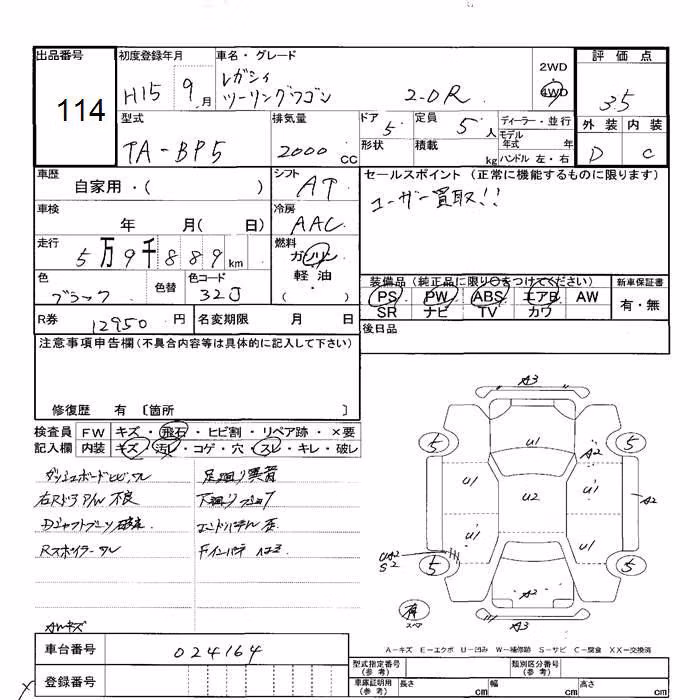 出品番号 初度登録年月 車名・グレード 2WD 評価点
114 H15 9月 レガシィ ツーリングワゴン 2.0R 4WD 3.5
型式 排気量 ドア 定員 ディーラー・並行 外装 内装
TA-BP5 2000CC 5 5人 モデル年式 年 D C
形状 積載 kg ハンドル 左・右
車歴 シフト セールスポイント(正常に機能するものに限ります)
自家用・( ) AT ユーザー買取!!
車検 冷房
年 月( 日) AAC
走行 燃料
5万9千889km ガソリン
色 色替 色コード 軽油
ブラック 32J ( )
装備品(純正品に限り○をつけてください) 新車保証書
PS PW ABS エアB AW 有・無
SR ナビ TV カワ
R券 12950円 名変期限 月 日 後日品
注意事項申告欄(不具合内容等は具体的に記入して下さい)
修復歴 有〔箇所 〕
検査員 FW キズ・飛石・ヒビ割・リペア跡・×要
記入欄 内装 キズ・汚レ・コゲ・穴・スレ・キレ・破レ
ダッシュボードヒビワレ 足廻り異音
右RドアP/W不良
Dシャフトブーツ破レ
Rスポイラーワレ
A3
5 U1 5
A2
U1 U2 U1 A2
U1 U1
UA2
S2
5 A2 5
有
スペア A3
AWキズ
A-キズ E-エクボ U-凹み W-補修跡 S-サビ C-腐食 XX-交換済
車台番号 024164
型式指定番号(参考) 類別区分番号(参考)
登録番号
車庫証明用(参考) 長さ cm 幅 cm 高さ cm